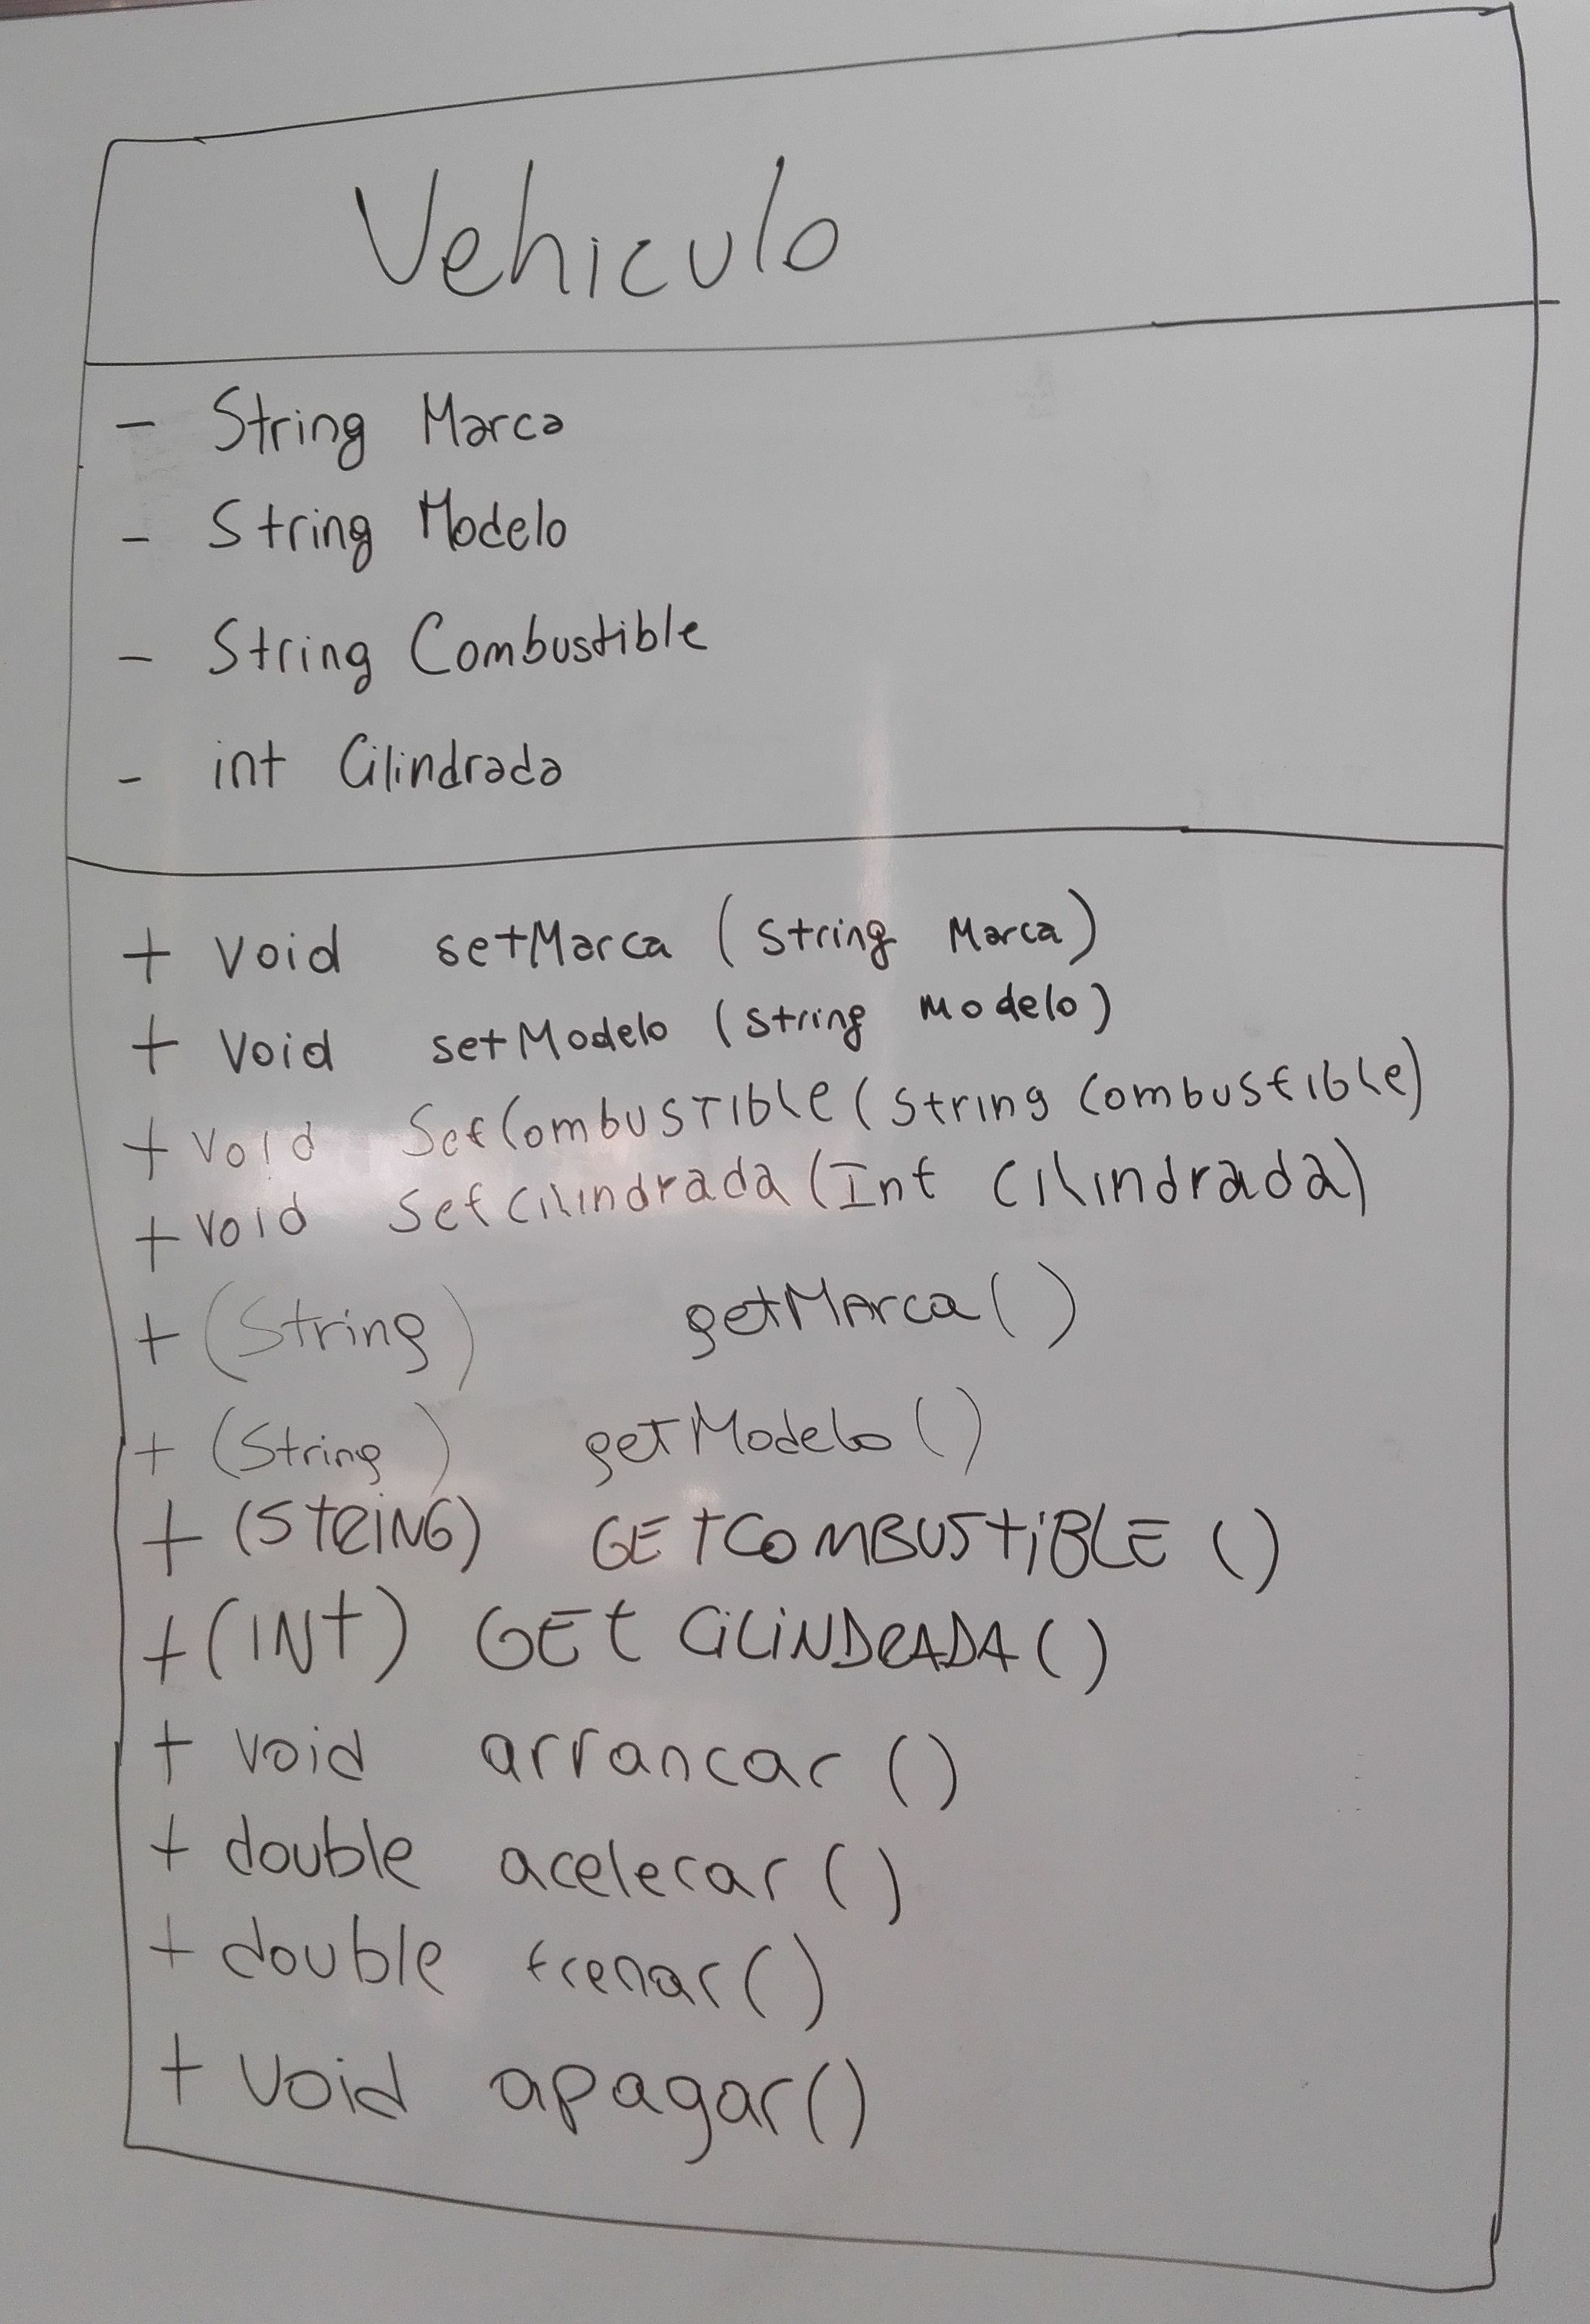 Vehiculo
- String Marca
- String Modelo
- String Combustible
- int Cilindrada
+ Void setMarca (String Marca)
+ Void setModelo (String Modelo)
+ Void SetCombustible (String Combustible)
+ Void SetCilindrada (Int Cilindrada)
+ (String) getMarca ()
+ (String) getModelo ()
+ (STRING) GETCOMBUSTiBLE ()
+ (INt) GEt CiLiNDRADA ()
+ void arrancar ()
+ double acelerar ()
+ double frenar ()
+ void apagar ()